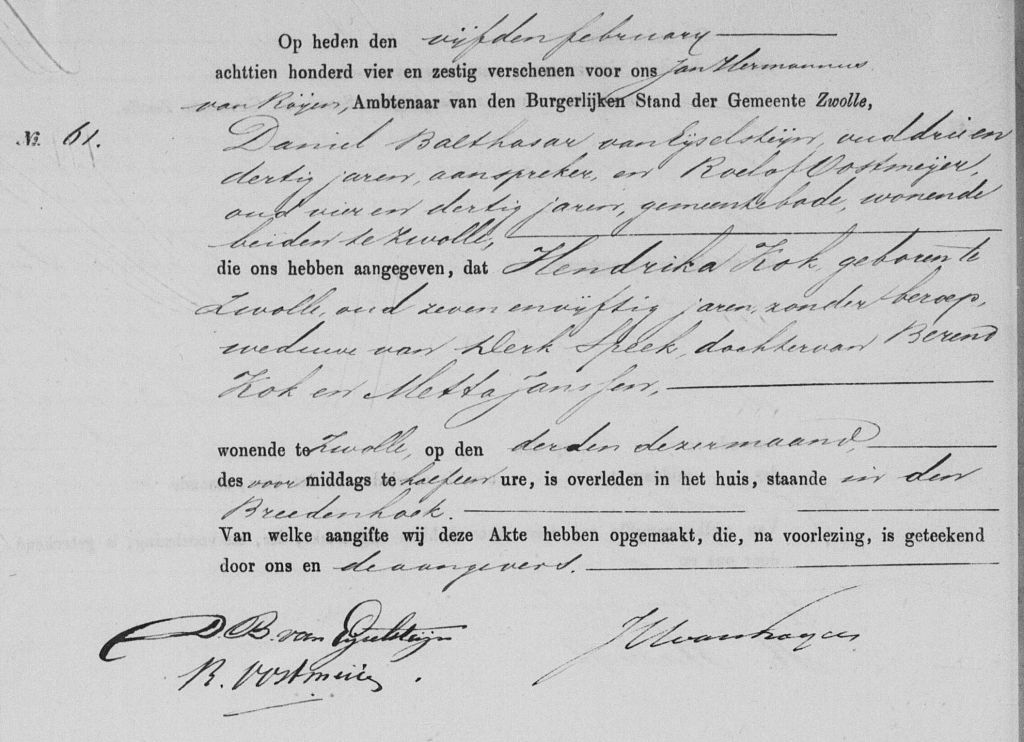 Op heden den vijfden february
achttien honderd vier en zestig verschenen voor ons Jan Hermannus
van Röijen, Ambtenaar van den Burgerlijken Stand der Gemeente Zwolle,
No. 61. Daniel Balthasar van Eijselsteijn, oud drie en
dertig jaren, aanspreker, en Roelof Oostmeijer,
oud vier en dertig jaren, gemeentebode, wonende
beiden te Zwolle,
die ons hebben aangegeven, dat Hendrika Kok, geboren te
Zwolle, oud zeven en vijftig jaren, zonder beroep,
weduwe van Derk Speek, dochter van Berend
Kok en Metta Janssen,
wonende te Zwolle, op den derden dezer maand,
des voor middags te half een ure, is overleden in het huis, staande in den
Breedenhoek.
Van welke aangifte wij deze Akte hebben opgemaakt, die, na voorlezing, is geteekend
door ons en de aangevers.
D. B. van Eijselsteijn
JHvanRoijen
R. Oostmeijer